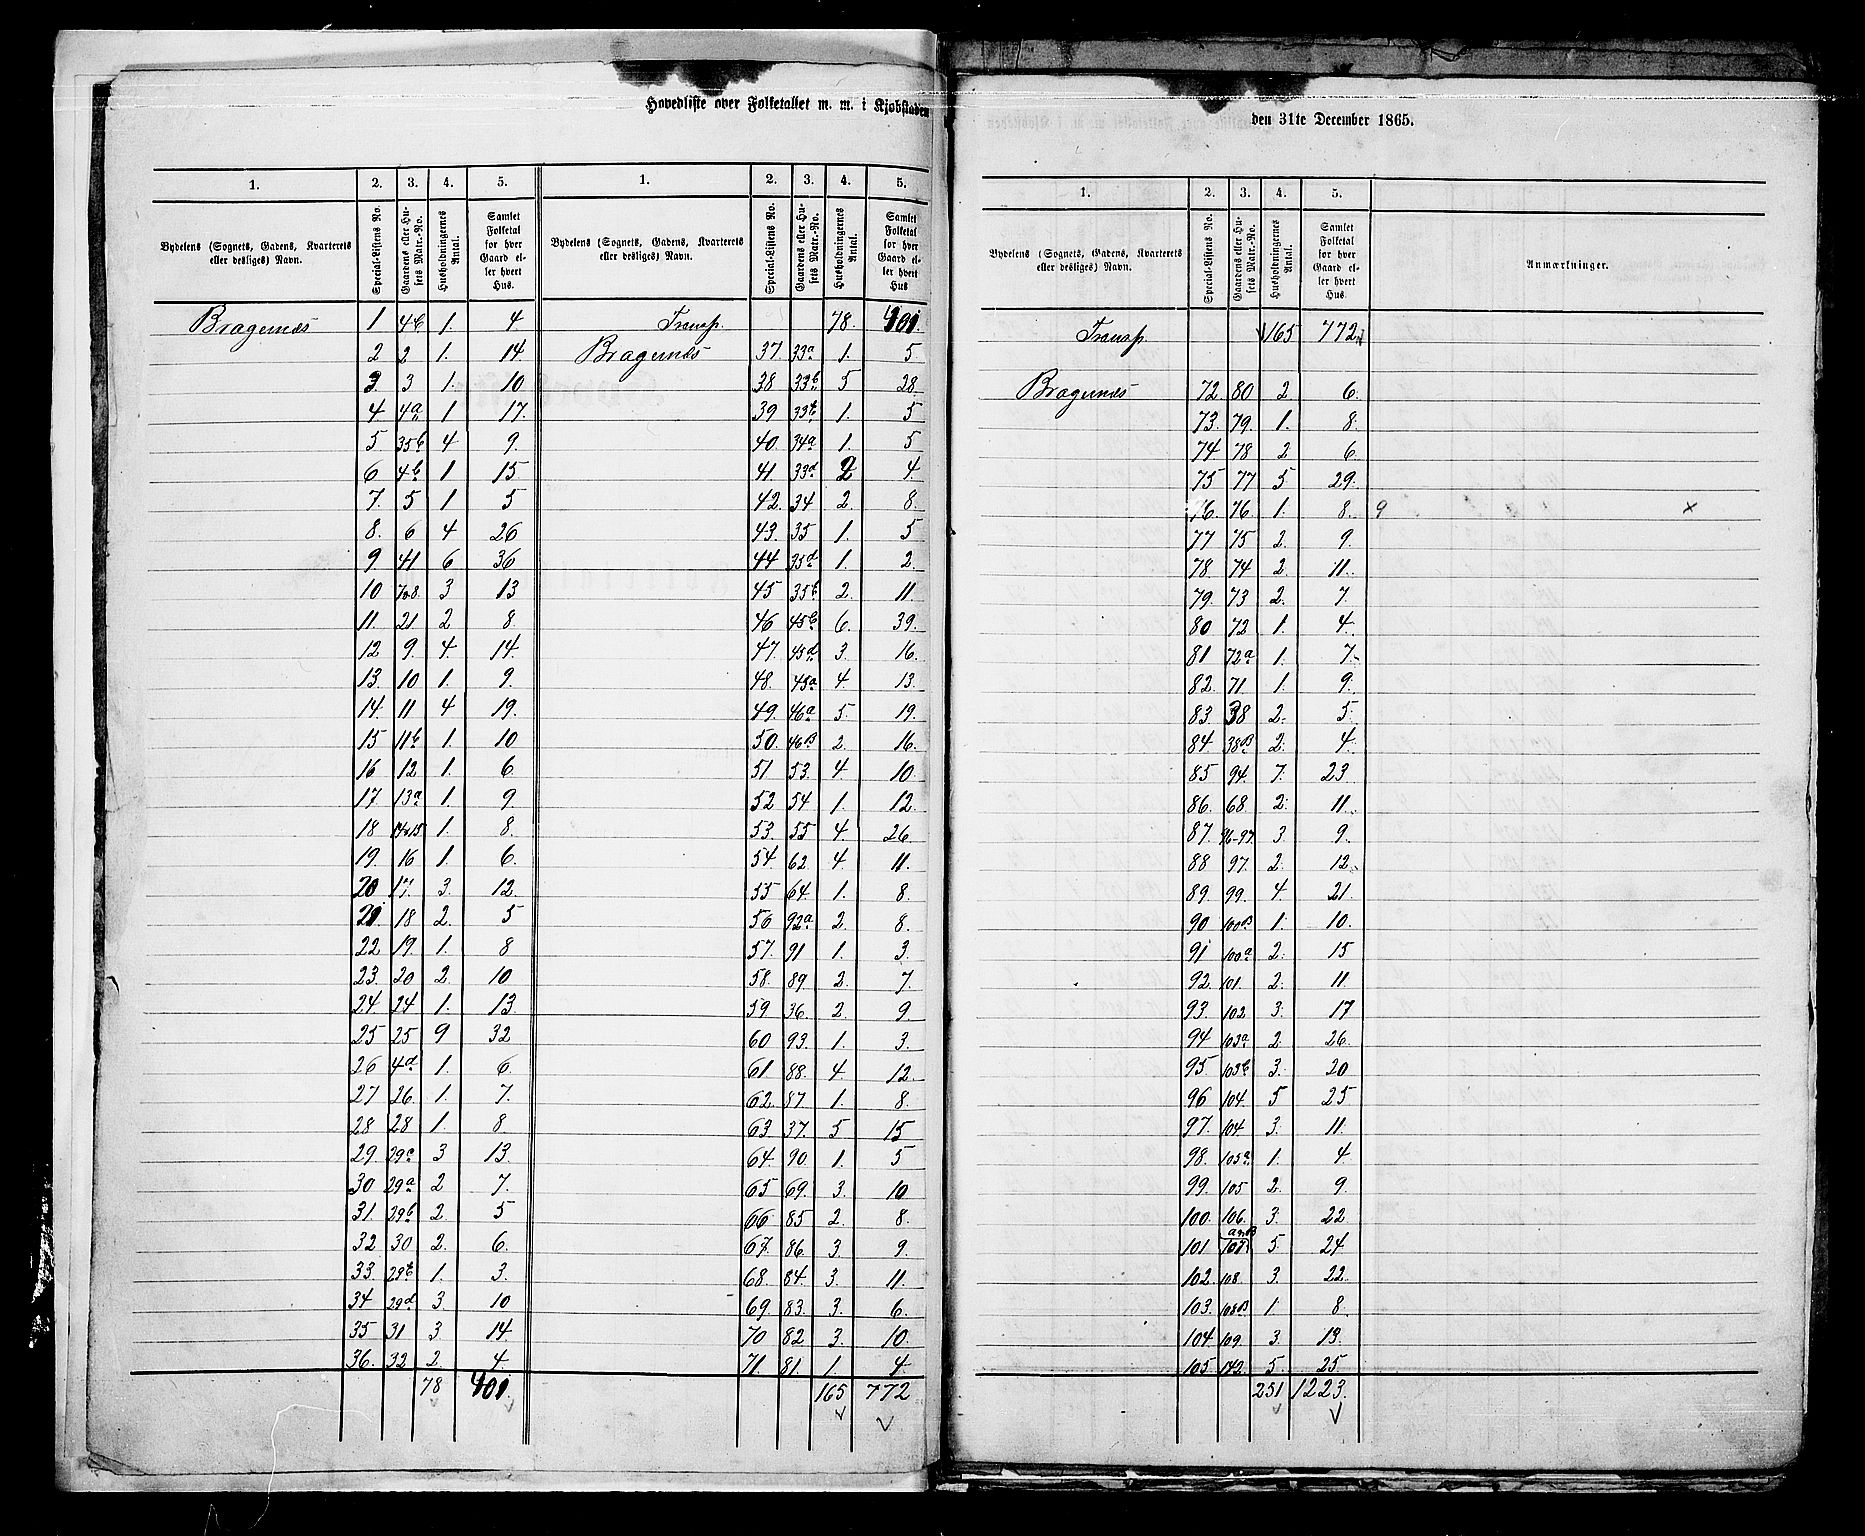 Hovedliste over Folketallet m. m. i Kjøbstaden
1. 2. 3. 4. 5. 1. 2. 3. 4. 5.
Bydelens (Sognets, Gadens, Kvarterets eller desliges) Navn. Special-Listens No. Gaardens eller Husets Matr.-No. Husholdningernes Antal. Samlet Folketal for hver Gaard eller hvert Hus. Bydelens (Sognets, Gadens, Kvarterets eller desliges) Navn. Special-Listens No. Gaardens eller Husets Matr.-No. Husholdningernes Antal. Samlet Folketal for hver Gaard eller hvert Hus
Bragernæs 1 4c 1. 4 Transp. 78. 401.
2 2 1. 14 Bragernæs 37. 33a 1. 5
3 3 1. 10 38 33b 5 28
4 4a 1 17. 39 33c 1. 5
5 35b 4 9. 40. 34a 1. 5
6 4b 1 15 41. 33d 2 4.
7. 5 1 5 42. 34 2. 8.
8. 6 4 26 43. 35 1. 5
9 41 6 36 44 35d 1. 2.
10 7o8. 3 13 45 35b 2. 11.
11. 21. 2 8. 46 45b 6. 39.
12 9. 4. 14. 47. 45d 3. 16.
13. 10 1. 9. 48. 45a 4. 13.
14. 11 4 19. 49. 46a 5. 19.
15 11b 1. 10 50. 46B 2. 16.
16 12 1. 6. 51 53. 4. 10.
17. 13a 1. 9 52 54 1. 12.
18 14o15 1. 8. 53. 55 4. 26.
19. 16 1. 6. 54. 62 4. 11.
20 17. 3. 12. 55 64. 1. 8.
21. 18 2. 5 56 92a 2 8.
22 19. 1. 8 57. 91 1. 3.
23. 20 2. 10 58. 89 2. 7.
24 24 1. 13. 59 36. 2 9.
25 25 9 32 60 93. 1. 3.
26 4d 1. 6. 61. 88. 4 12.
27 26. 1. 7. 62. 87. 1. 8.
28 28 1 8. 63 37. 5 15
29. 29a 3 13. 64. 90. 1. 5
30 29a 2 7. 65 69. 3. 10
31. 29b 2. 5 66 85 2. 8.
32 30 2. 6. 67. 86. 3. 9.
33. 29c 1. 3. 68. 84. 3. 11.
34 29d 3. 10 69. 83. 3. 6.
35 31 3. 14. 70 82 3. 10.
36. 32 2. 4. 71. 81. 1. 4
78 401. 165 772
den 31te December 1865.
1. 2. 3. 4. 5.
Bydelens (Sognets, Gadens, Kvarterets eller desliges) Navn. Special-Listens No. Gaardens eller Husets Matr.-No. Husholdningernes Antal. Samlet Folketal for hver Gaard eller hvert Hus Anmærkninger.
Transp. 165 772
Bragernæs 72 80 2 6.
73. 79. 1. 8.
74 78 2 6.
75 77 5 29.
76. 76. 1. 8. 9 x
77 75 2. 9.
78. 74 2. 11.
79. 73 2. 7.
80 72 1. 4.
81 72a 1. 7.
82. 71 1. 9.
83. 38 2. 5.
84. 38B 2. 4.
85 94. 7. 23.
86. 68. 2. 11.
87. 96-97. 3 9.
88 97. 2. 12.
89. 99. 4. 21.
90 100B 1. 10.
91 100a 2. 15
92. 101. 2. 11.
93. 102 3. 17
94 103a 2. 26.
95 103b 3. 20
96 104. 5 25
97. 104. 3. 11.
98. 105a 1. 4
99. 105 2. 9.
100. 106. 3. 22
101 107 5. 24
102. 108. 3. 22.
103. 108B 1. 8.
104 109. 3 13.
105. 142. 5. 25.
251 1223.